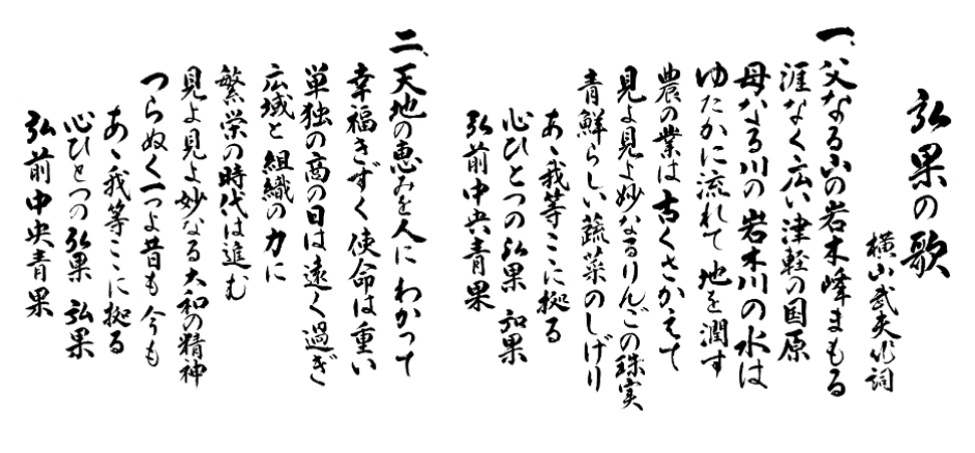 弘果の歌
横山武夫作詞
一、父なる山の岩木峰まもる
涯なく広い津軽の国原
母なる川の岩木川の水は
ゆたかに流れて地を潤す
農の業は古くさかえて
見よ見よ妙なるりんごの珠実
青鮮らしい蔬菜のしげり
あゝ我等ここに拠る
心ひとつの弘果 弘果
弘前中央青果
二、天地の恵みを人にわかって
幸福きずく使命は重い
単独の商の日は遠く過ぎ
広域と組織の力に
繁栄の時代は進む
見よ見よ妙なる大和の精神
つらぬく一つよ昔も今も
あゝ我等ここに拠る
心ひとつの弘果 弘果
弘前中央青果